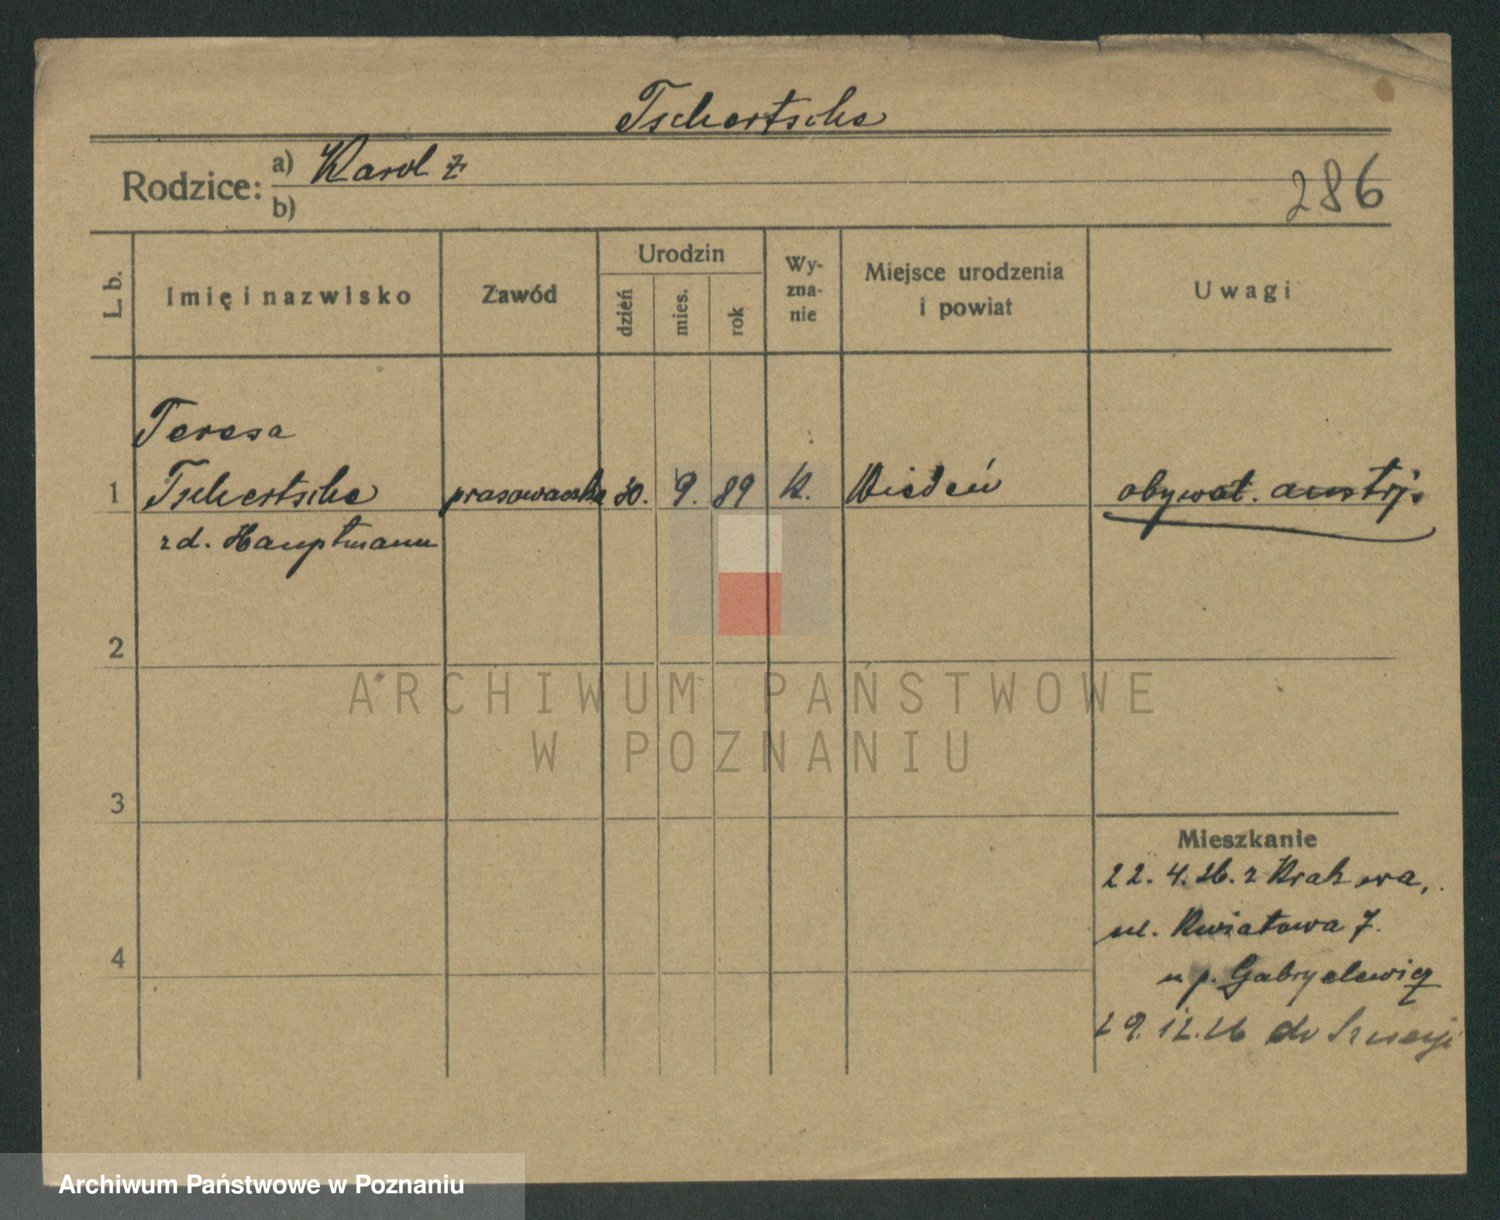 Tschertsche
Rodzice: a) Karol ż
b)
286
L. b.
Imię i nazwisko
Zawód
Urodzin
dzień
mies.
rok
Wy-
zna-
nie
Miejsce urodzenia
i powiat
Uwagi
Teresa
1 Tschertsche prasowaczka 30. 9. 89 k. Wiedeń obywat. austrj.
zd. Hauptmann
2
3
4
Mieszkanie
22. 4. 26. z Krakowa,
ul. Kwiatowa 7.
u p. Gabryelewicz
29. 12. 26 do
ARCHIWUM PAŃSTWOWE
W POZNANIU
Archiwum Państwowe w Poznaniu